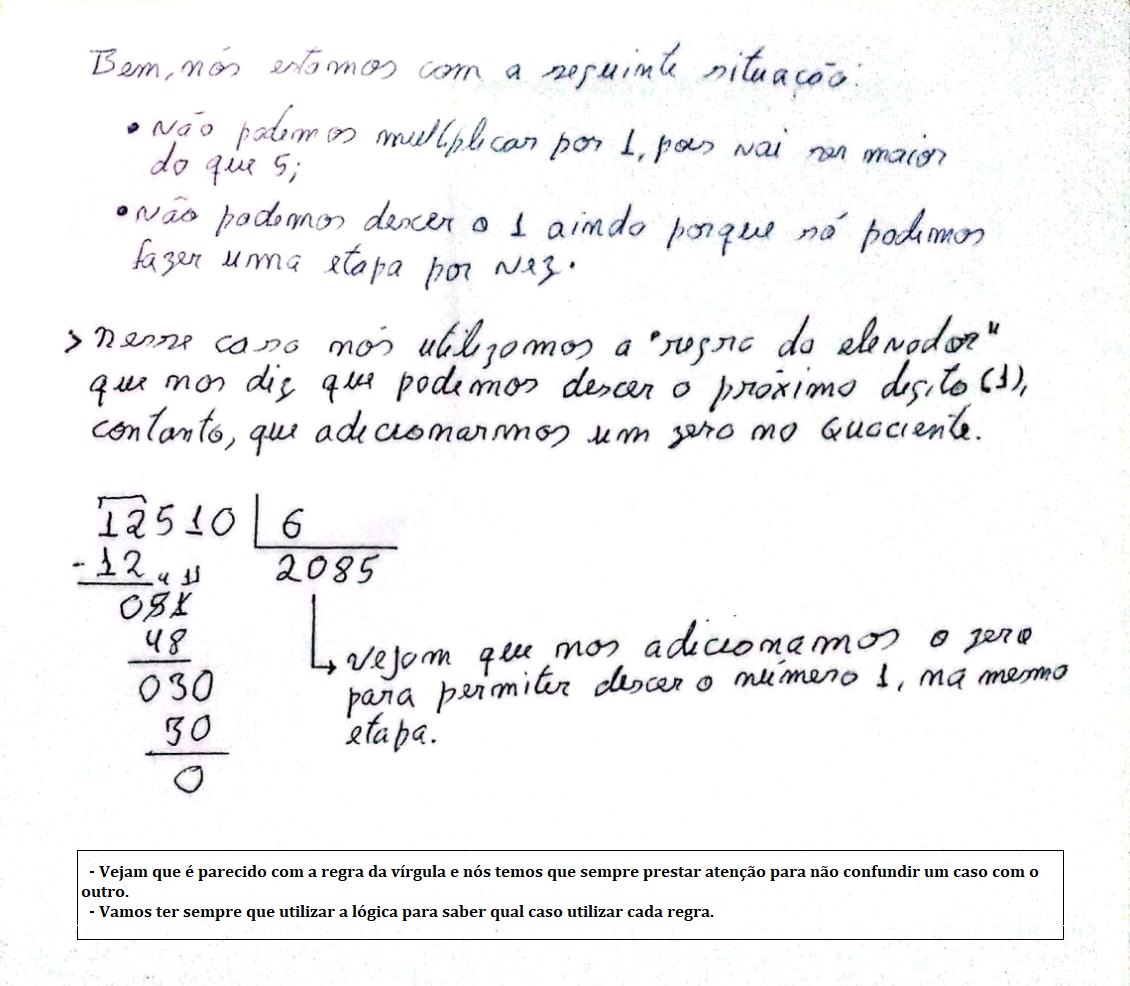 Bem, nós estamos com a seguinte situação:
• Não podemos multiplicar por 1, pois vai ser maior
do que 5;
• Não podemos descer o 1 ainda porque só podemos
fazer uma etapa por vez.
> Nesse caso nós utilizamos a "regra do elevador"
que nos diz que podemos descer o próximo dígito (1),
contanto, que adicionarmos um zero no Quociente.
12510 | 6
- 12 2085
4 11
051
48
030
30
0
Vejam que nos adicionamos o zero
para permitir descer o número 1, na mesmo
etapa.
- Vejam que é parecido com a regra da vírgula e nós temos que sempre prestar atenção para não confundir um caso com o
outro.
- Vamos ter sempre que utilizar a lógica para saber qual caso utilizar cada regra.